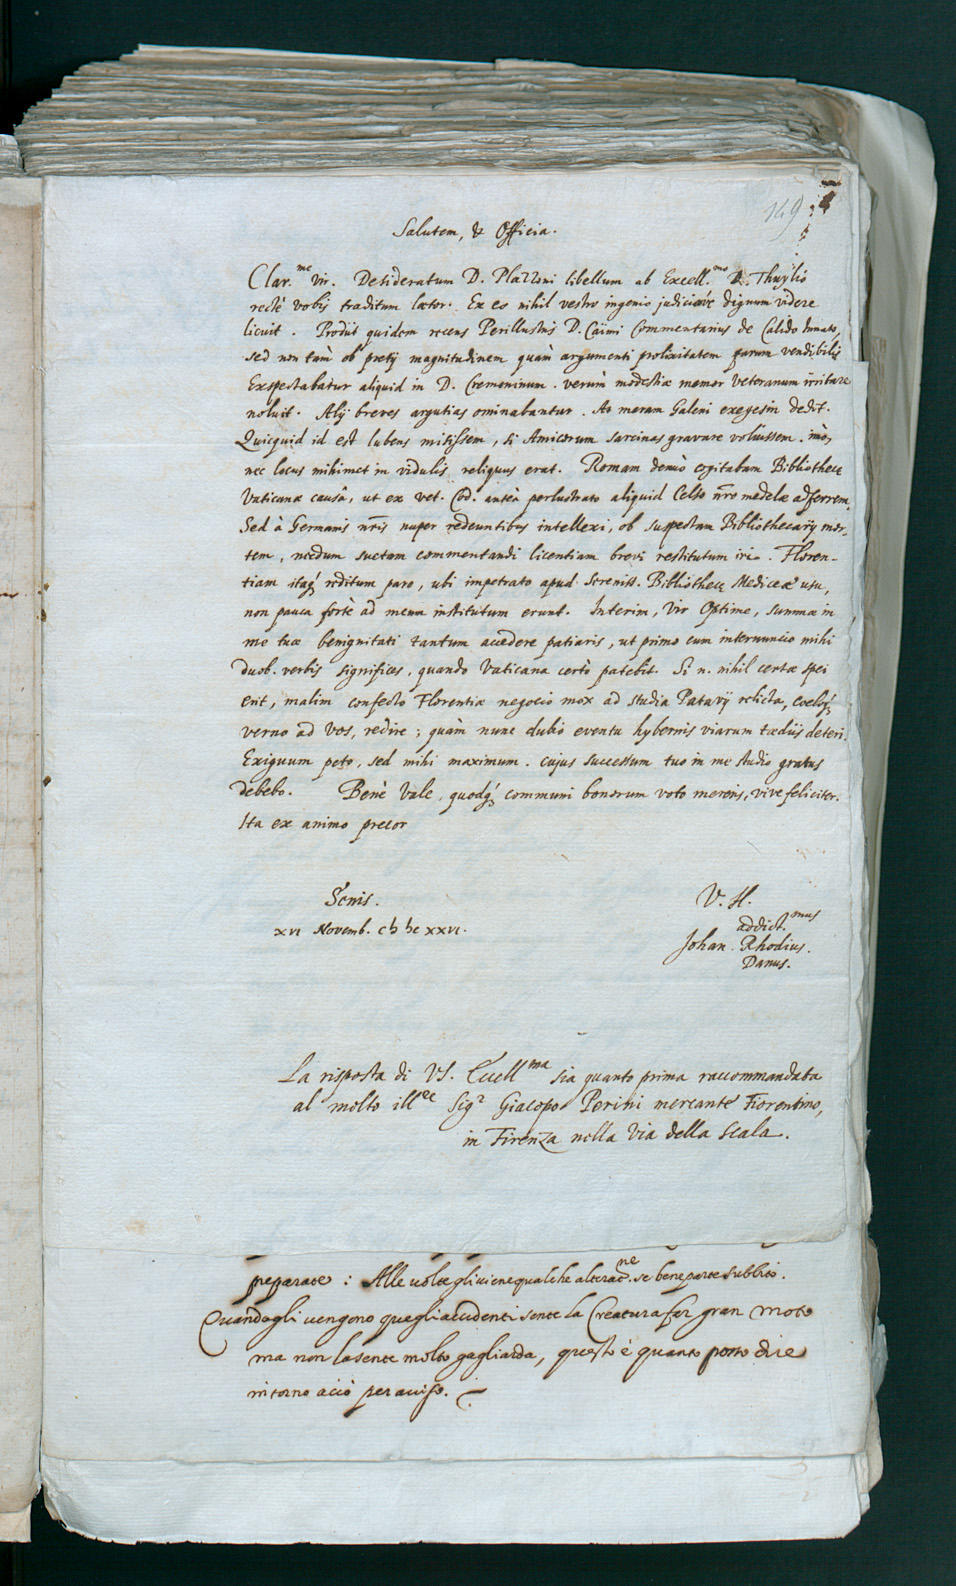 149
Salutem, & Officia.
Clar.me Vir. Desideratum D. Plazzoni libellum ab Excell.mo D. Thuylio
rectè vobis traditum lætor. Ex eo nihil vestro ingenio judicioúe dignum videre
licuit. Prodüt quidem recens Perillustris D. Caimi Commentarius de Calido Innato,
sed non tàm ob pretij magnitudinem quàm argumenti prolixitatem parum vendibilis
Exspectabatur aliquid in D. Cremoninum. verùm modestiæ memor Veteranum irritare
noluit. Alij breves argutias ominabantur. At meram Galeni exegesin dedit.
Quicquid id est lubens misissem, si Amicorum sarcinas gravare voluissem. imò,
nec locus mihimet in vidulis reliquus erat. Romam denuò cogitabam Bibliothecę
Vaticanæ causâ, ut ex vet. Cod. anteà perlustrato aliquid Celso nr̄o medelæ adferrem.
Sed à Germanis nr̄is nuper redeuntibus intellexi, ob suspectam Bibliothecarij mor-
tem, necdum suetam commentandi licentiam brevi restitutum iri. Floren-
tiam itaq́ʒ reditum paro, ubi impetrato apud Sereniss. Bibliothecę Mediceæ usu,
non pauca fortè ad meum institutum erunt. Interim, Vir Optime, summæ in
me tuæ benignitati tantum accedere patiaris, ut primo cum internuncio mihi
duob. verbis significes, quando Vaticana certò patebit. Si n. nihil certæ spei
erit, malim confecto Florentiæ negocio mox ad studia Patavij relicta, cœloq́ʒ
verno ad vos, redire; quàm nunc dubio eventu hybernis viarum tædiis deteri.
Exiguum peto, sed mihi maximum. cujus successum tuo in me studio gratus
debebo. Benè Vale, quodq́ʒ communi bonorum voto mereris, vive feliciter.
Ita ex animo precor
Senis.
XVI Novemb. cIɔ Iɔc XXVI.
V. H.
addict.mus
Johan. Rhodius.
Danus.
La risposta di VS. Eccell.ma sia quanto prima raccommandata
al molto ill.re Sigr Giacopo Perini mercante Fiorentino,
in Firenza nella Via della Scala.
preparate : Alle uolte gli uiene qualche alterat.ne se bene parte subbito.
Quandogli uengono quegli accidenti sente la Creatura far gran moto
ma non la sente molto gagliarda, questo è quanto posso dire
intorno acciò per auiso.